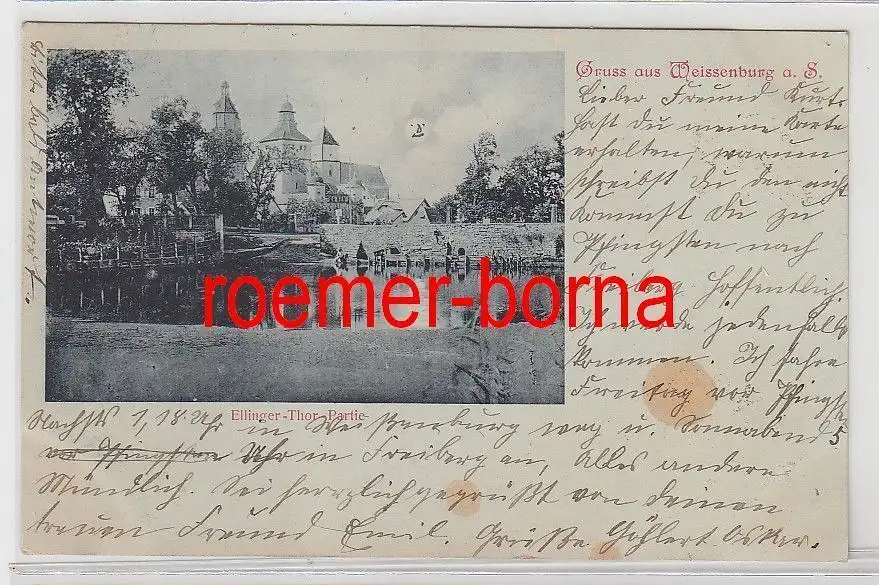 Gruss aus Weissenburg a. S.
Lieber Freund Kurt.
Hast Du meine Karte
erhalten, warum
schreibst Du den nicht
Kommst Du zu
Pfingsten nach
Freiberg hoffentlich.
Ich werde jedenfalls
kommen. Ich fahre
Freitag vor Pfingsten
roemer-borna
Ellinger-Thor-Partie
Nachts 1,18 Uhr in Weißenburg weg u. Sonnabend 5
vor Pfingsten Uhr in Freiberg an, Alles andere
Mündlich. Sei herzlich gegrüßt von deinen
treuen Freund Emil. Grüße Göhlert Oskar.